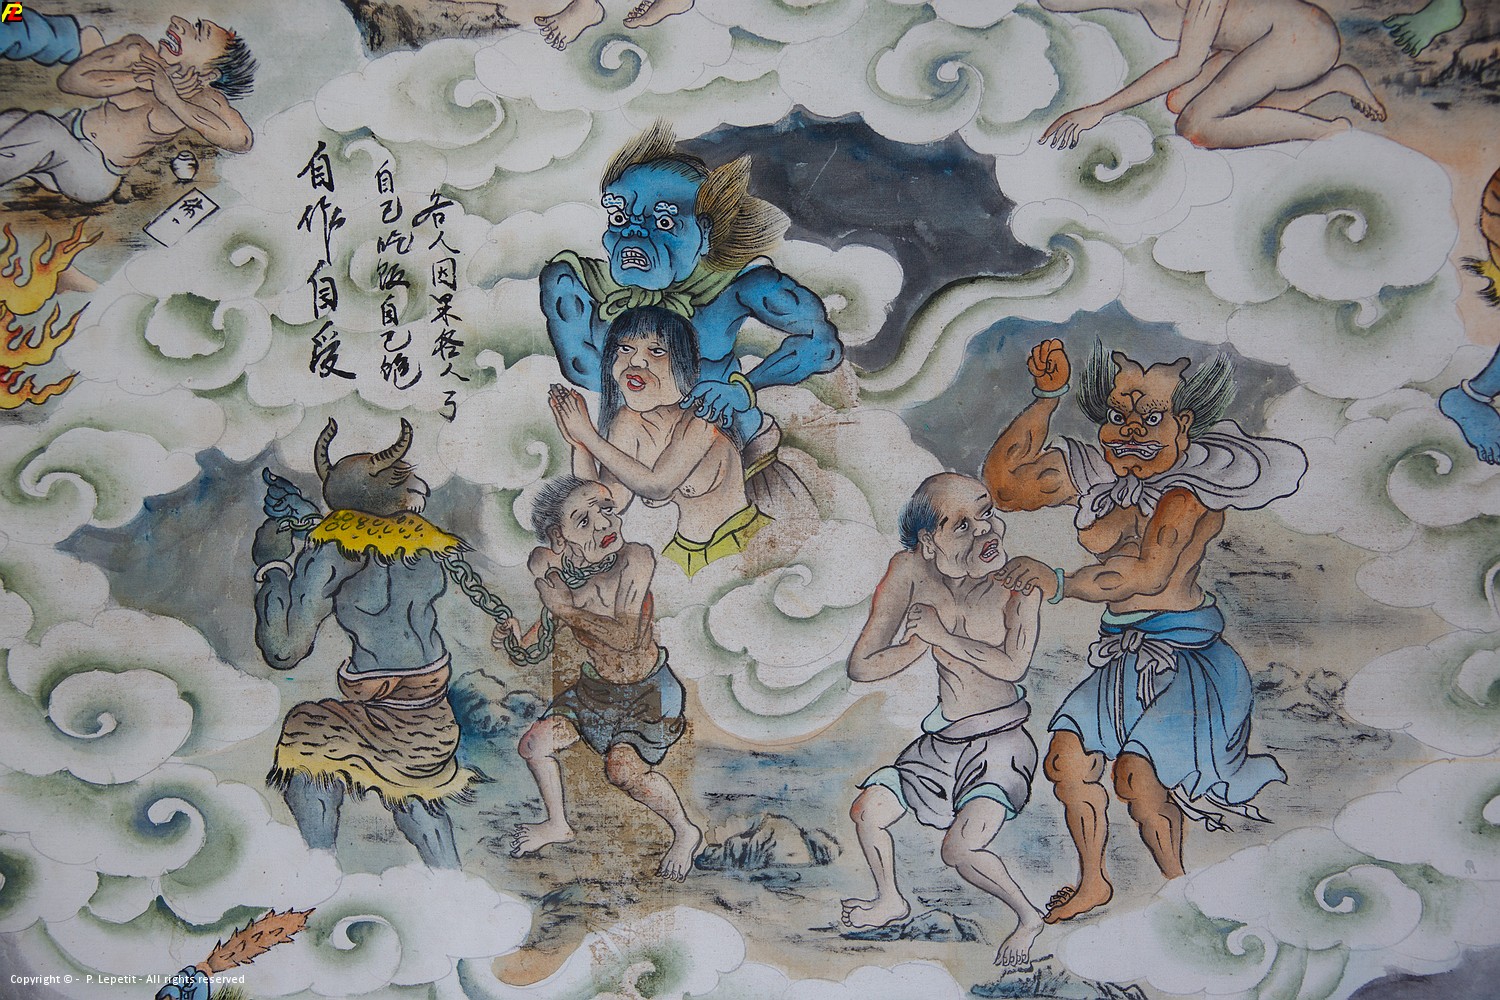 各人因果各人了
自己吃饭自己饱
自作自受
Copyright © - P. Lepetit - All rights reserved